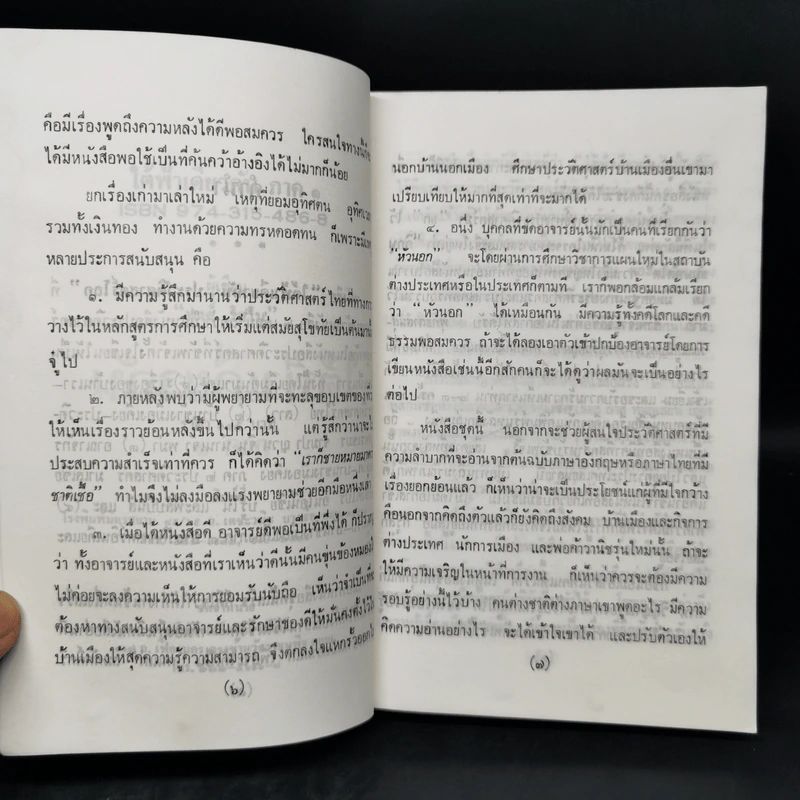 คือมีเรื่องพูดถึงความหลังได้ดีพอสมควร ใครสนใจทางนี้ก็
ได้มีหนังสือพอใช้เป็นที่ค้นคว้าอ้างอิงได้ไม่มากก็น้อย
ยกเรื่องเก่ามาเล่าใหม่ เหตุที่ยอมอุทิศตน อุทิศเวลา
รวมทั้งเงินทอง ทำงานด้วยความทรหดอดทน ก็เพราะมี
หลายประการสนับสนุน คือ
๑. มีความรู้สึกมานานว่าประวัติศาสตร์ไทยที่ทางการ
วางไว้ในหลักสูตรการศึกษาให้เริ่มแต่สมัยสุโขทัยเป็นต้นมานั้น
จู๋ไป
๒. ภายหลังพบว่ามีผู้พยายามที่จะทะลุขอบเขตของ
ให้เห็นเรื่องราวย้อนหลังขึ้นไปกว่านั้น แต่รู้สึกว่านาจะ
ประสบความสาเร็จเท่าที่ควร ก็ได้คิดว่า "เราก็ชายหมายมาด
ชาติเชื้อ" ทำไมจึงไม่ลงมือลงแรงพยายามช่วยอีกมือหนึ่งเล่า
๓. เมื่อได้หนังสือดี อาจารย์ดีพอเป็นที่พึ่งได้ ก็ปราก
ว่า ทั้งอาจารย์และหนังสือที่เราเห็นว่าดีนั้นมีคนขุ่นข้องหมองใจ
ไม่ค่อยจะลงความเห็นให้การยอมรับนับถือ เห็นว่าจำเป็นที่จะ
ต้องหาทางสนับสนุนอาจารย์และรักษาของดีให้มั่นคงตั้งไว้ใน
บ้านเมืองให้สุดความรู้ความสามารถ จึงตกลงใจแหกรั้วออกไป
(๖)
นอกบ้านนอกเมือง ศึกษาประวัติศาสตร์บ้านเมืองอื่นเขามา
เปรียบเทียบให้มากที่สุดเท่าที่จะมากได้
๔. อนึ่ง บุคคลที่ขัดอาจารย์นั้นมักเป็นคนที่เรียกกันว่า
"หัวนอก" จะโดยผ่านการศึกษาวิชาการแผนใหม่ในสถาบัน
ต่างประเทศหรือในประเทศก็ตามที เราก็พอกล้อมแกล้มเรียก
ว่า "หัวนอก" ได้เหมือนกัน มีความรู้ทั้งคดีโลกและคดี
ธรรมพอสมควร ถ้าจะได้ลองเอาตัวเข้าปกป้องอาจารย์โดยการ
เขียนหนังสือเช่นนี้อีกสักคนก็จะได้ดูว่าผลมันจะเป็นอย่างไร
ต่อไป
หนังสือชุดนี้ นอกจากจะช่วยผู้สนใจประวัติศาสตร์ที่มี
ความลำบากที่จะอ่านจากต้นฉบับภาษาอังกฤษหรือภาษาไทยที่มี
เรื่องยอกย้อนแล้ว ก็เห็นว่าน่าจะเป็นประโยชน์แก่ผู้ที่มีใจกว้าง
คือนอกจากคิดถึงตัวแล้วก็ยังคิดถึงสังคม บ้านเมืองและกิจการ
ต่างประเทศ นักการเมือง และพ่อค้าวานิชรุ่นใหม่นั้น ถ้าจะ
ให้มีความเจริญในหน้าที่การงาน ก็เห็นว่าควรจะต้องมีความ
รอบรู้อย่างนี้ไว้บ้าง คนต่างชาติต่างภาษาเขาพูดอะไร มีความ
คิดความอ่านอย่างไร จะได้เข้าใจเขาได้ และปรับตัวเองให้
(๗)